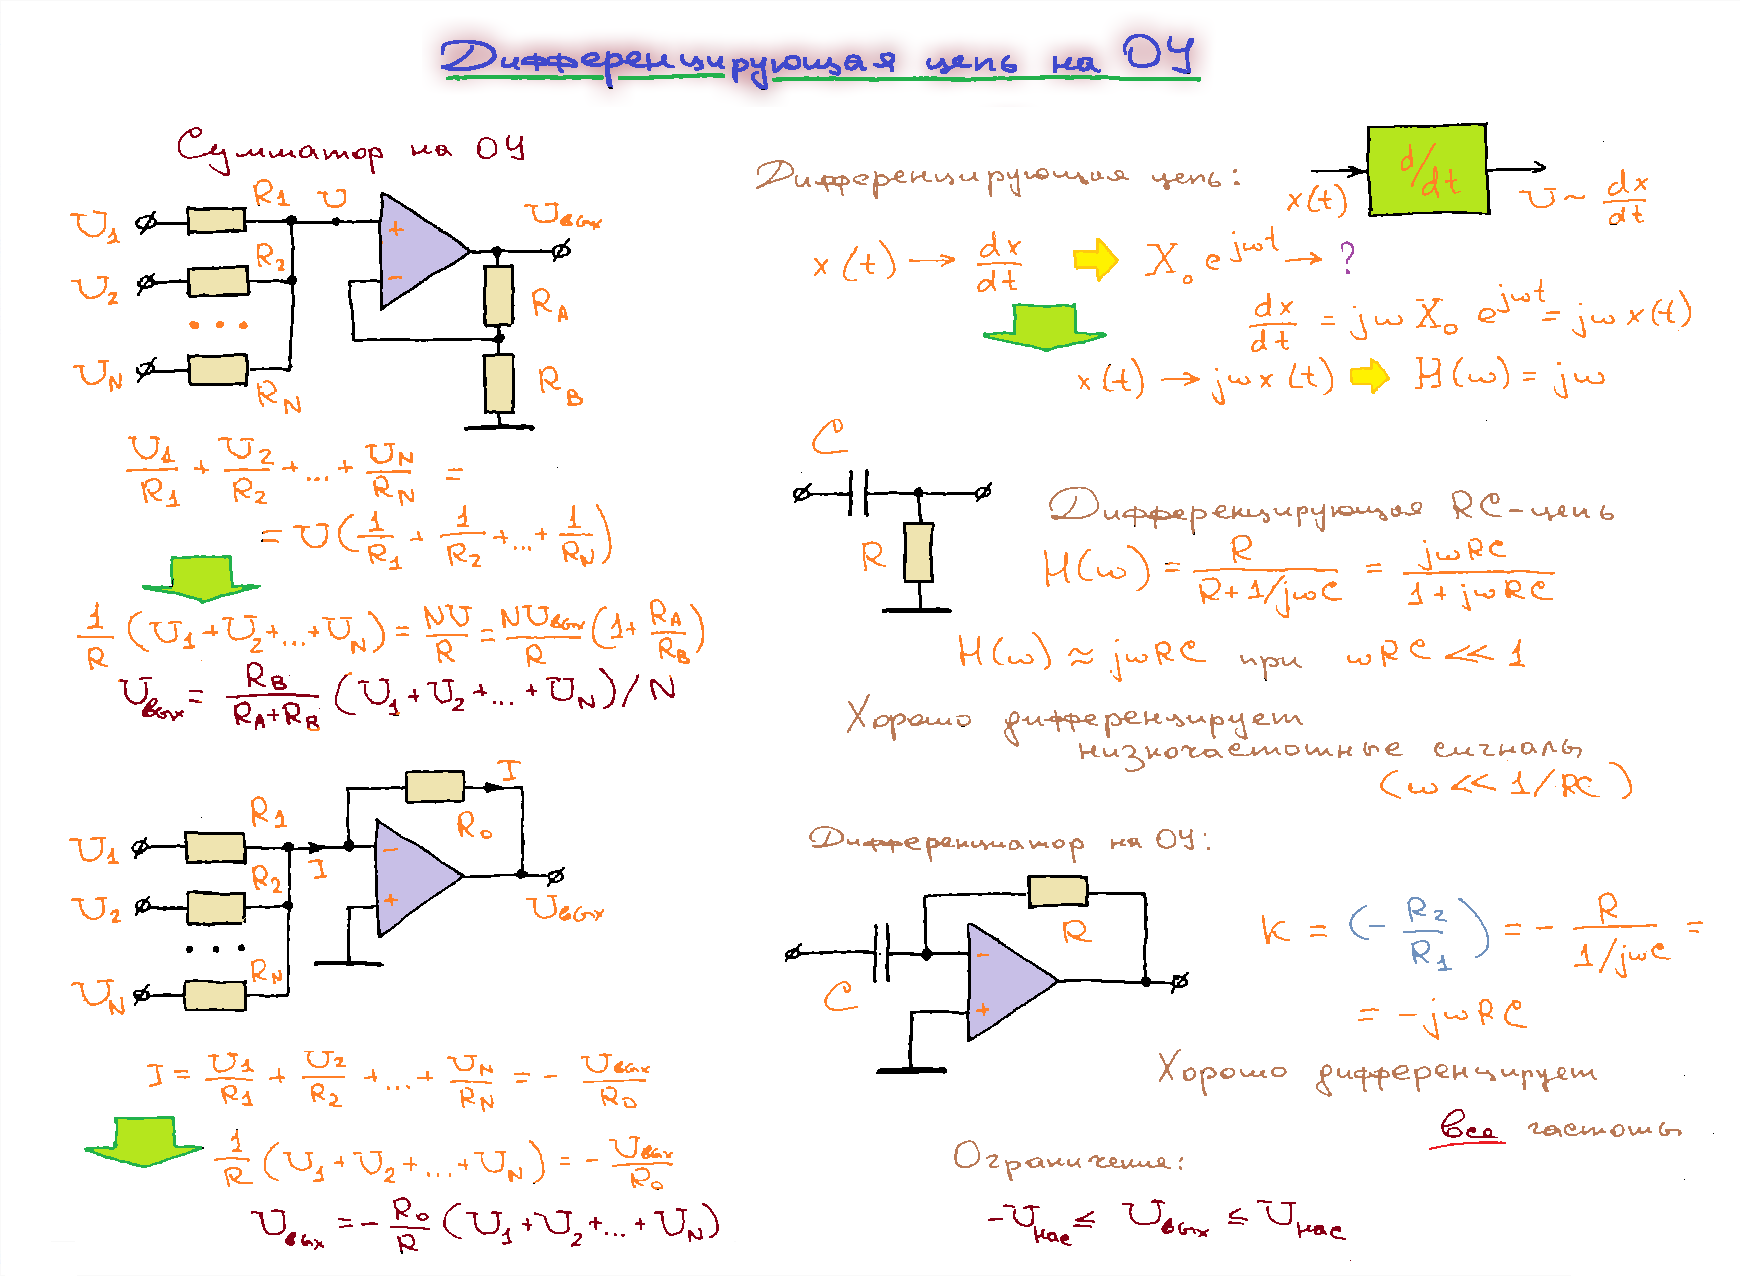 Дифференцирующая цепь на ОУ
Сумматор на ОУ
U1 R1 U + Uвых
U2 R2 - RA
...
UN RN RB
U1/R1 + U2/R2 + ... + UN/RN =
= U(1/R1 + 1/R2 + ... + 1/RN)
1/R (U1+U2+...+UN) = NU/R = NUвых/R (1+ RA/RB)
Uвых = RB/(RA+RB) (U1+U2+...+UN)/N
I
R0
U1 R1 I -
U2 R2 + Uвых
...
UN RN
I = U1/R1 + U2/R2 + ... + UN/RN = - Uвых/R0
1/R (U1+U2+...+UN) = - Uвых/R0
Uвых = - R0/R (U1+U2+...+UN)
Дифференцирующая цепь:
x(t) d/dt U ~ dx/dt
x(t) → dx/dt ⇒ X0 e^jωt → ?
dx/dt = jω X0 e^jωt = jω x(t)
x(t) → jω x(t) ⇒ H(ω) = jω
C
R
Дифференцирующая RC-цепь
H(ω) = R/(R+1/jωC) = jωRC/(1+jωRC)
H(ω) ≈ jωRC при ωRC << 1
Хорошо дифференцирует
низкочастотные сигналы
(ω << 1/RC)
Дифференциатор на ОУ:
R
C - +
K = (- R2/R1) = - R/(1/jωC) =
= -jωRC
Хорошо дифференцирует
все частоты
Ограничения:
-Uнас ≤ Uвых ≤ Uнас